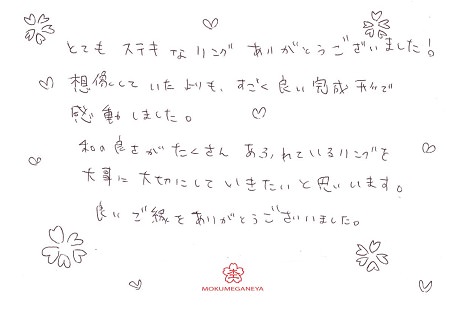 とても ステキなリング ありがとうございました!
想像していたよりも、すごく良い完成形で
感動しました。
和の良さがたくさん あふれているリングを
大事に大切にしていきたいと思います。
良いご縁をありがとうございました。
MOKUMEGANEYA